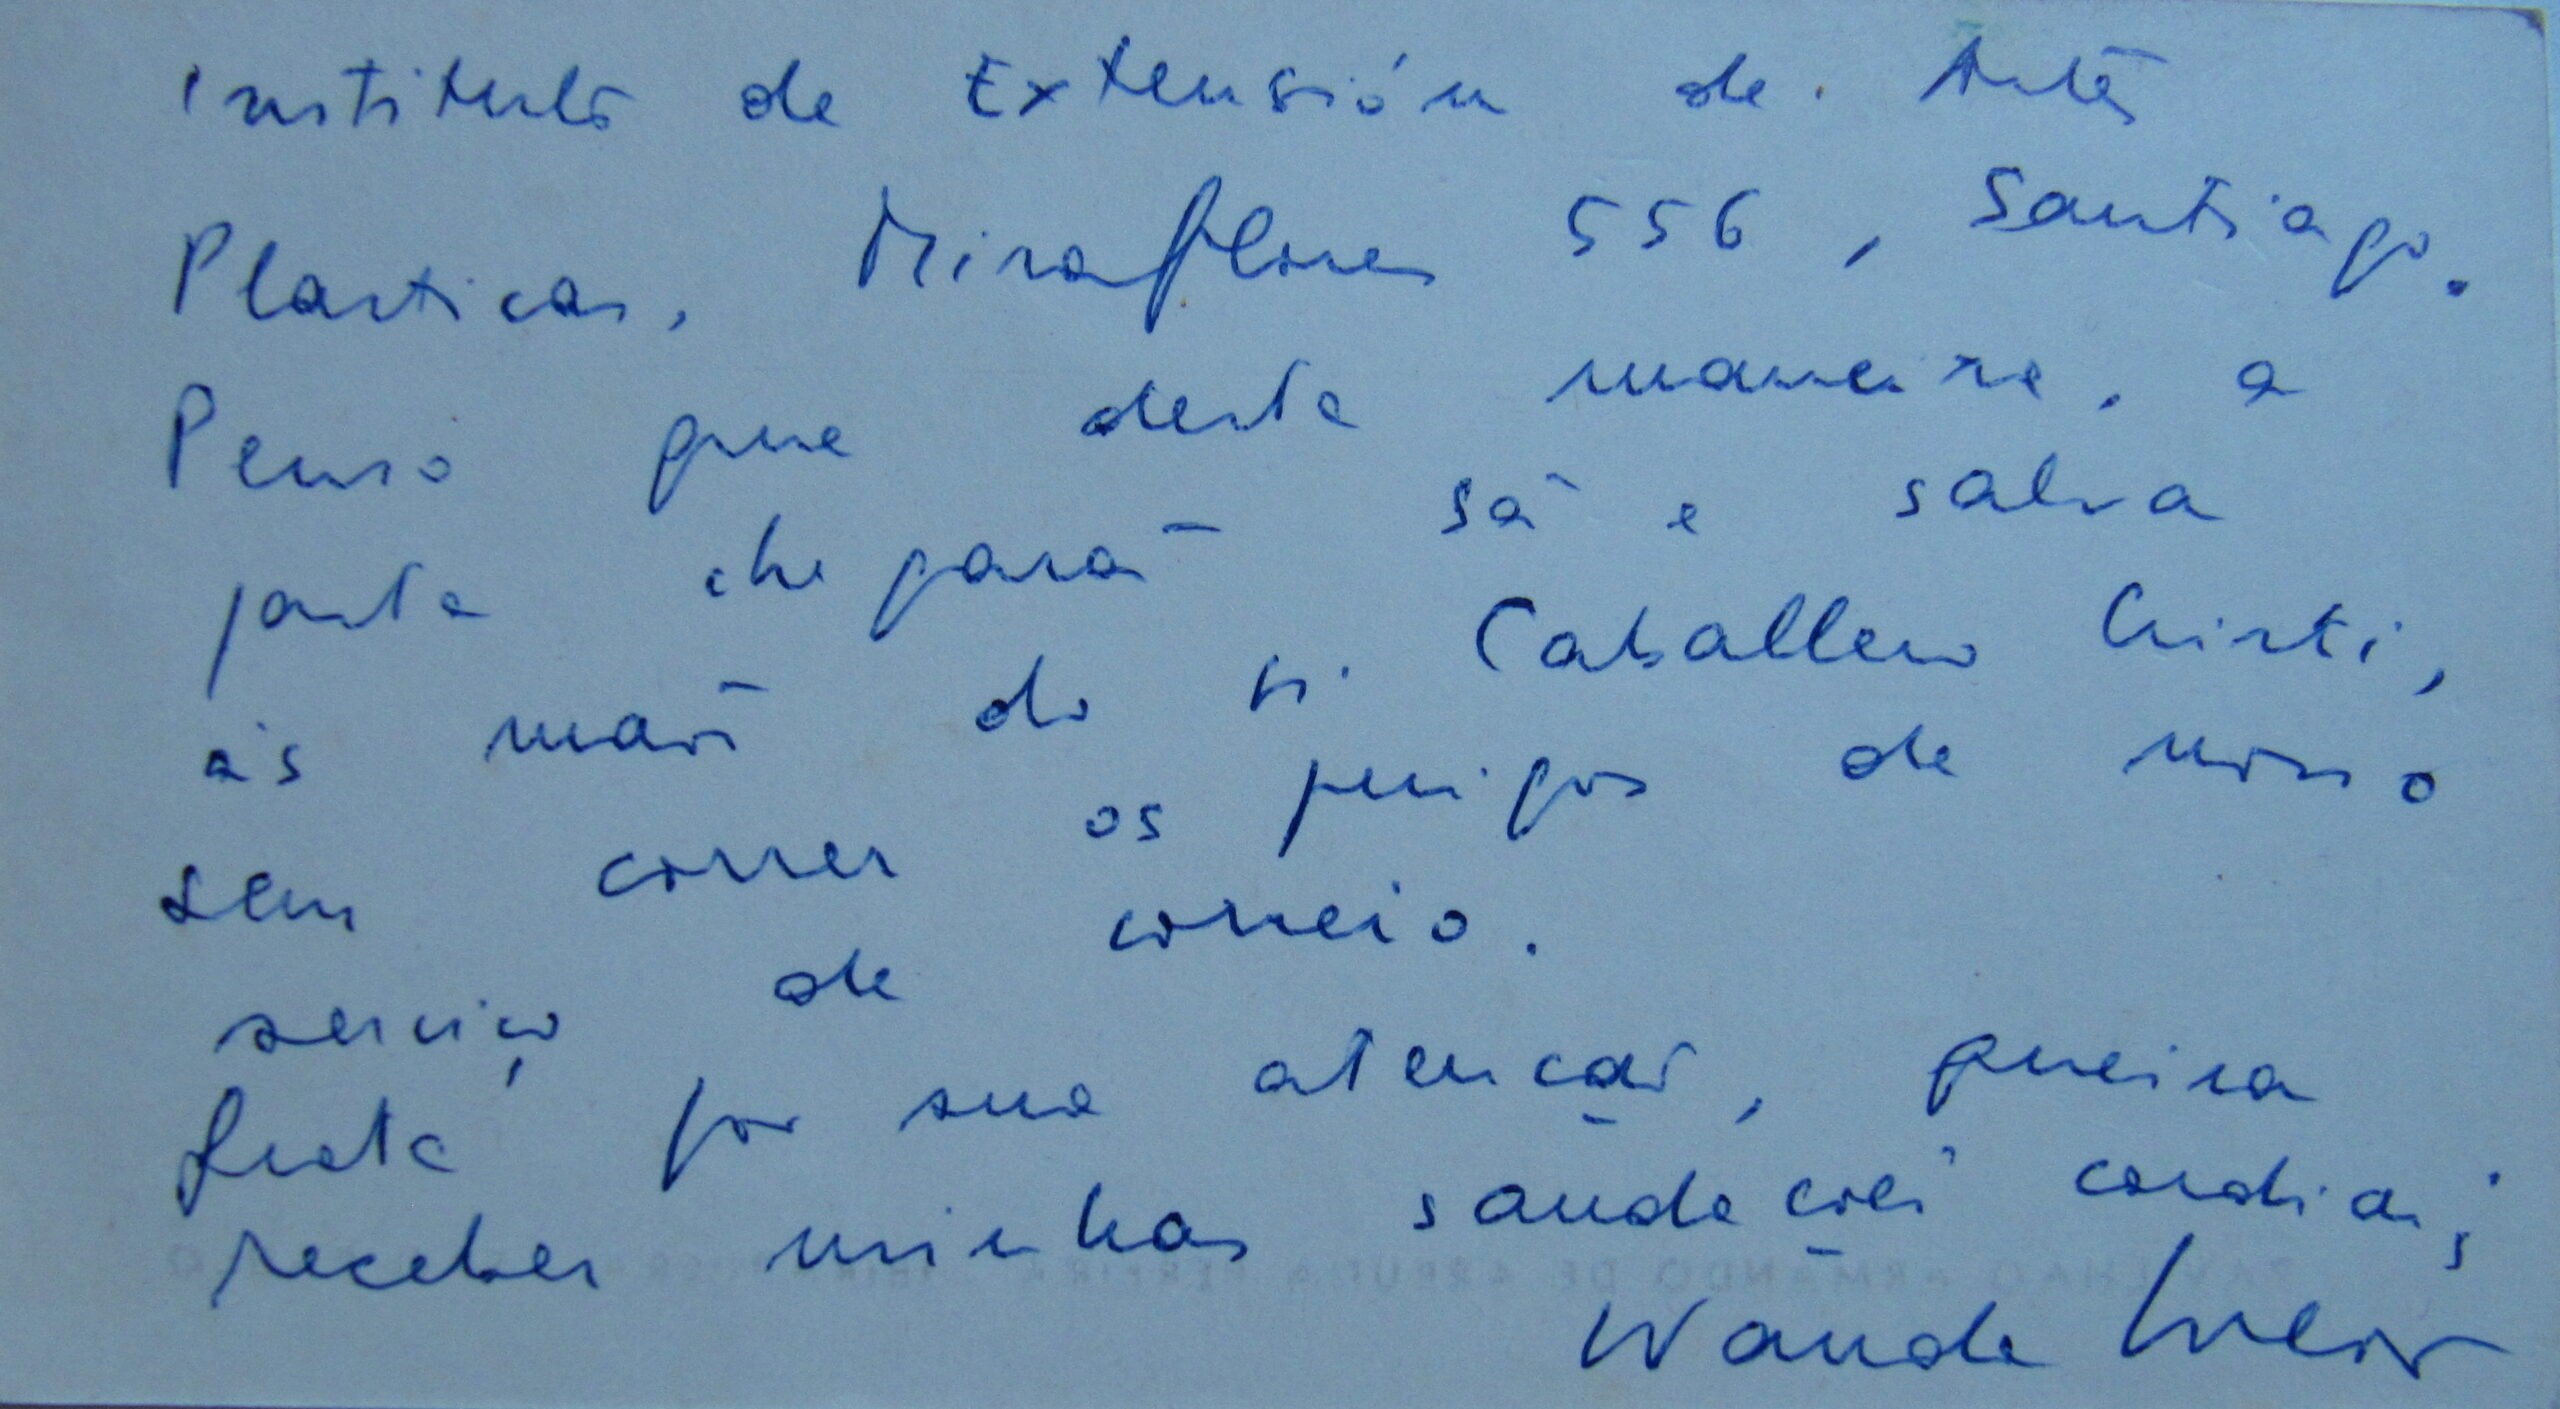 Instituto de Extensión de Artes
Plasticas, Miraflores 556, Santiago.
Penso que desta maneira, a
pasta chegará sã e salva
às mãos do sr. Caballero Cristi,
sem correr os perigos de nosso
serviço de correio.
Grata por sua atenção, queira
receber minhas saudações cordiais;
Wanda Svevo